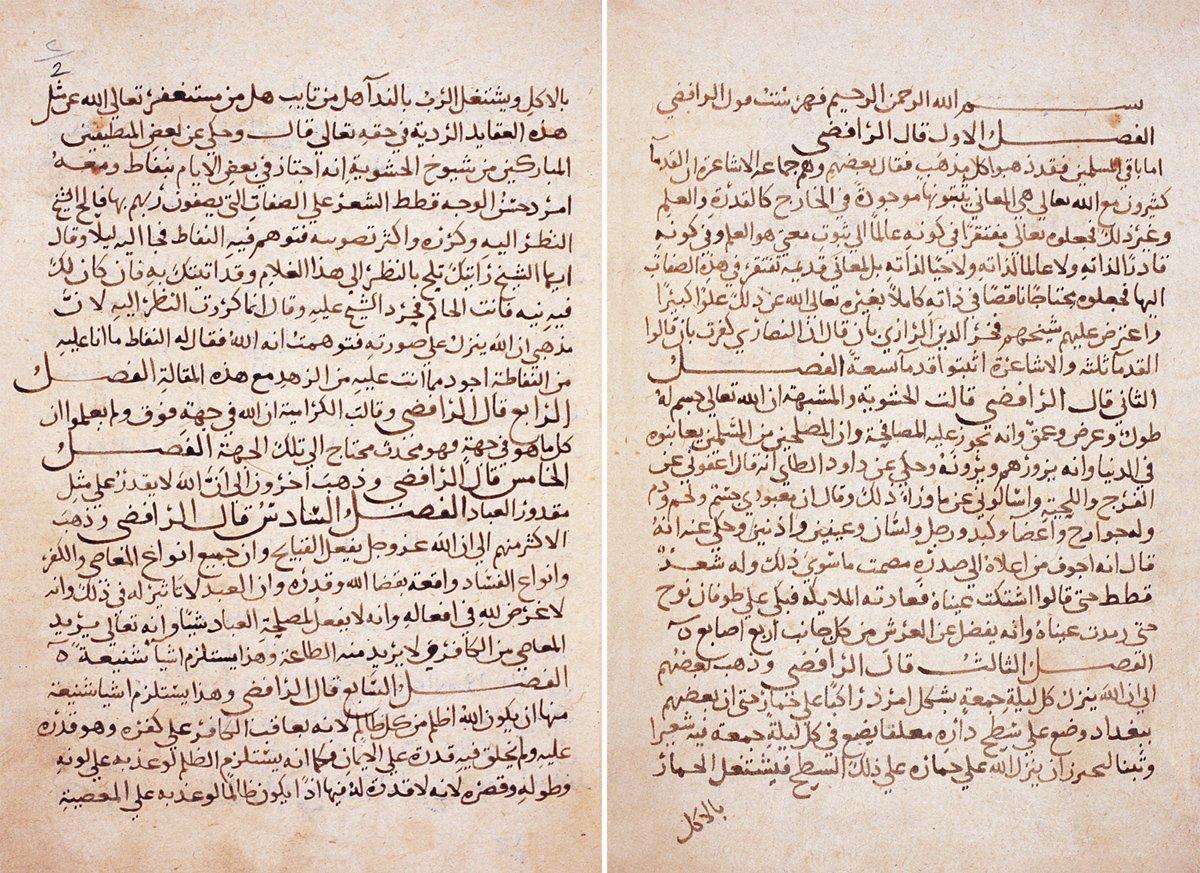 بســـم الله الرحمن الرحيم فهرست قول الرافضي
الفصل الاول قال الرافضي
اما باقي المسلمين فقد ذهبوا كل مذهب فقال بعضهم وهم جماعة الاشاعرة ان القدما
كثيرون مع الله تعالى هي المعاني يثبتونها موجودة في الخارج كالقدرة والعلم
وغير ذلك فجعلوه تعالى مفتقرا في كونه عالما الى ثبوت معنى هو العلم وفي كونه
قادرا لذاته ولا عالما لذاته ولا حيا لذاته بل لمعاني قديمة تفتقر في هذه الصفات
اليها فجعلوه محتاجا ناقصا في ذاته كاملا بغيره تعالى الله عن ذلك علوا كبيرا
واعترض عليهم شيخهم فخر الدين الرازي بان قال ان النصارى كفرت بان قالوا
القدما ثلثه والاشاعرة اثبتوا قدما تسعة الفصل
الثاني قال الرافضي قالت الحشوية والمشبهة ان الله تعالى جسم له
طول وعرض وعمق وانه يجوز عليه المصافحة وان المصلحين من المسلمين يعانقونه
في الدنيا وانه يزورهم ويزورونه وحكي عن داود الطاي انه قال اعفوني عن
الفرج واللحية واسالوني عن ما ورا ذلك وقال ان معبودي جسم ولحم ودم
وله جوارح واعضا وكبد ورجل ولسان وعينين واذنين وحكي عنه انه
قال انه اجوف من اعلاه الى صدره مصمت ما سوى ذلك وله شعر
قطط حتى قالوا اشتكت عيناه فعادته الملايكة فبكى على طوفان نوح
حتى رمدت عيناه وانه يفضل عن العرش من كل جانب اربع اصابع ه
الفصل الثالث قال الرافضي وذهب بعضهم
الى ان الله ينزل كل ليلة جمعة بشكل امرد راكبا على حمار حتى ان بعضهم
ببغداد وضع على سطح داره معلفا يضع في كل ليلة جمعة فيه شعيرا
وتبنا لتجويز ان ينزل الله على حماره على ذلك السطح فيشتغل الحمار
بالاكل
2
بالاكل ويشتغل الرب بالندا هل من تايب هل من مستغفر تعالى الله عن مثل
هذه العقايد الردية في حقه تعالى قال وحكي عن بعض
المباركين من شيوخ الحشوية انه اجتاز في بعض الايام بنفاط ومعه
امرد حسن الوجه قطط الشعر على الصفات التي يصفون ربهم بها فالح الشيخ
النظر اليه وكرره واكثر تصويبه فتوهم فيه النفاط فجا اليه ليلا وقال
ايها الشيخ رايتك تلح بالنظر الى هذا الغلام وقد اتيتك به فان كان لك
فيه نيه فانت الحاكم فحرد الشيخ عليه وقال انما كررت النظر اليه لان
مذهبي ان الله ينزل على صورته فتوهمت انه الله فقال له النفاط ما انا عليه
من النفاطة اجود مما انت عليه من الزهد مع هذه المقالة الفصل
الرابع قال الرافضي وقالت الكرامية ان الله في جهة فوق ولم يعلموا ان
كلما هو في جهة فهو محدث محتاج الى تلك الجهة الفصل
الخامس قال الرافضي وذهب اخرون الى ان الله لا يقدر على مثل
مقدور العباد الفصل السادس قال الرافضي وذهب
الاكثر منهم الى ان الله عز وجل يفعل القبايح وان جميع انواع المعاصي والكفر
وانواع الفساد واقعة بقضا الله وقدره وان العبد لا تاثير له في ذلك وانه
لا غرض لله في افعاله وانه لا يفعل لمصلحة العباد شيا وانه تعالى يريد
المعاصي من الكافر ولا يريد منه الطاعة وهذا يستلزم اشيا شنيعة ه
الفصل السابع قال الرافضي وهذا يستلزم اشيا شنيعة
منها ان يكون الله اظلم من كل ظالم لانه يعاقب الكافر على كفره وهو قدره
عليه ولم يخلق فيه قدرة على الايمان فكما انه يستلزم الظلم لو عذبه على لونه
وطوله وقصره لانه لا قدرة له فيها اذا يكون ظالما لو عذبه على المعصية